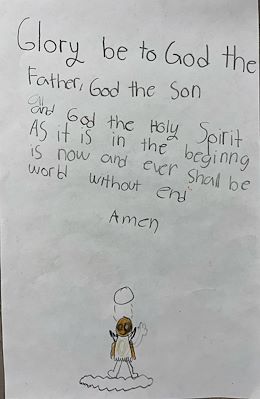 Glory be to God the
Father, God the Son
and God the Holy Spirit
As it is in the beginng
is now and ever shall be
world without end
Amen